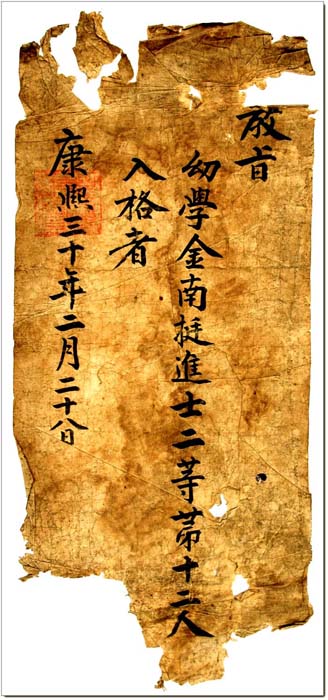 敎旨
幼學金南挺進士二等苐十二人
入格者
康熙三十年二月二十八日